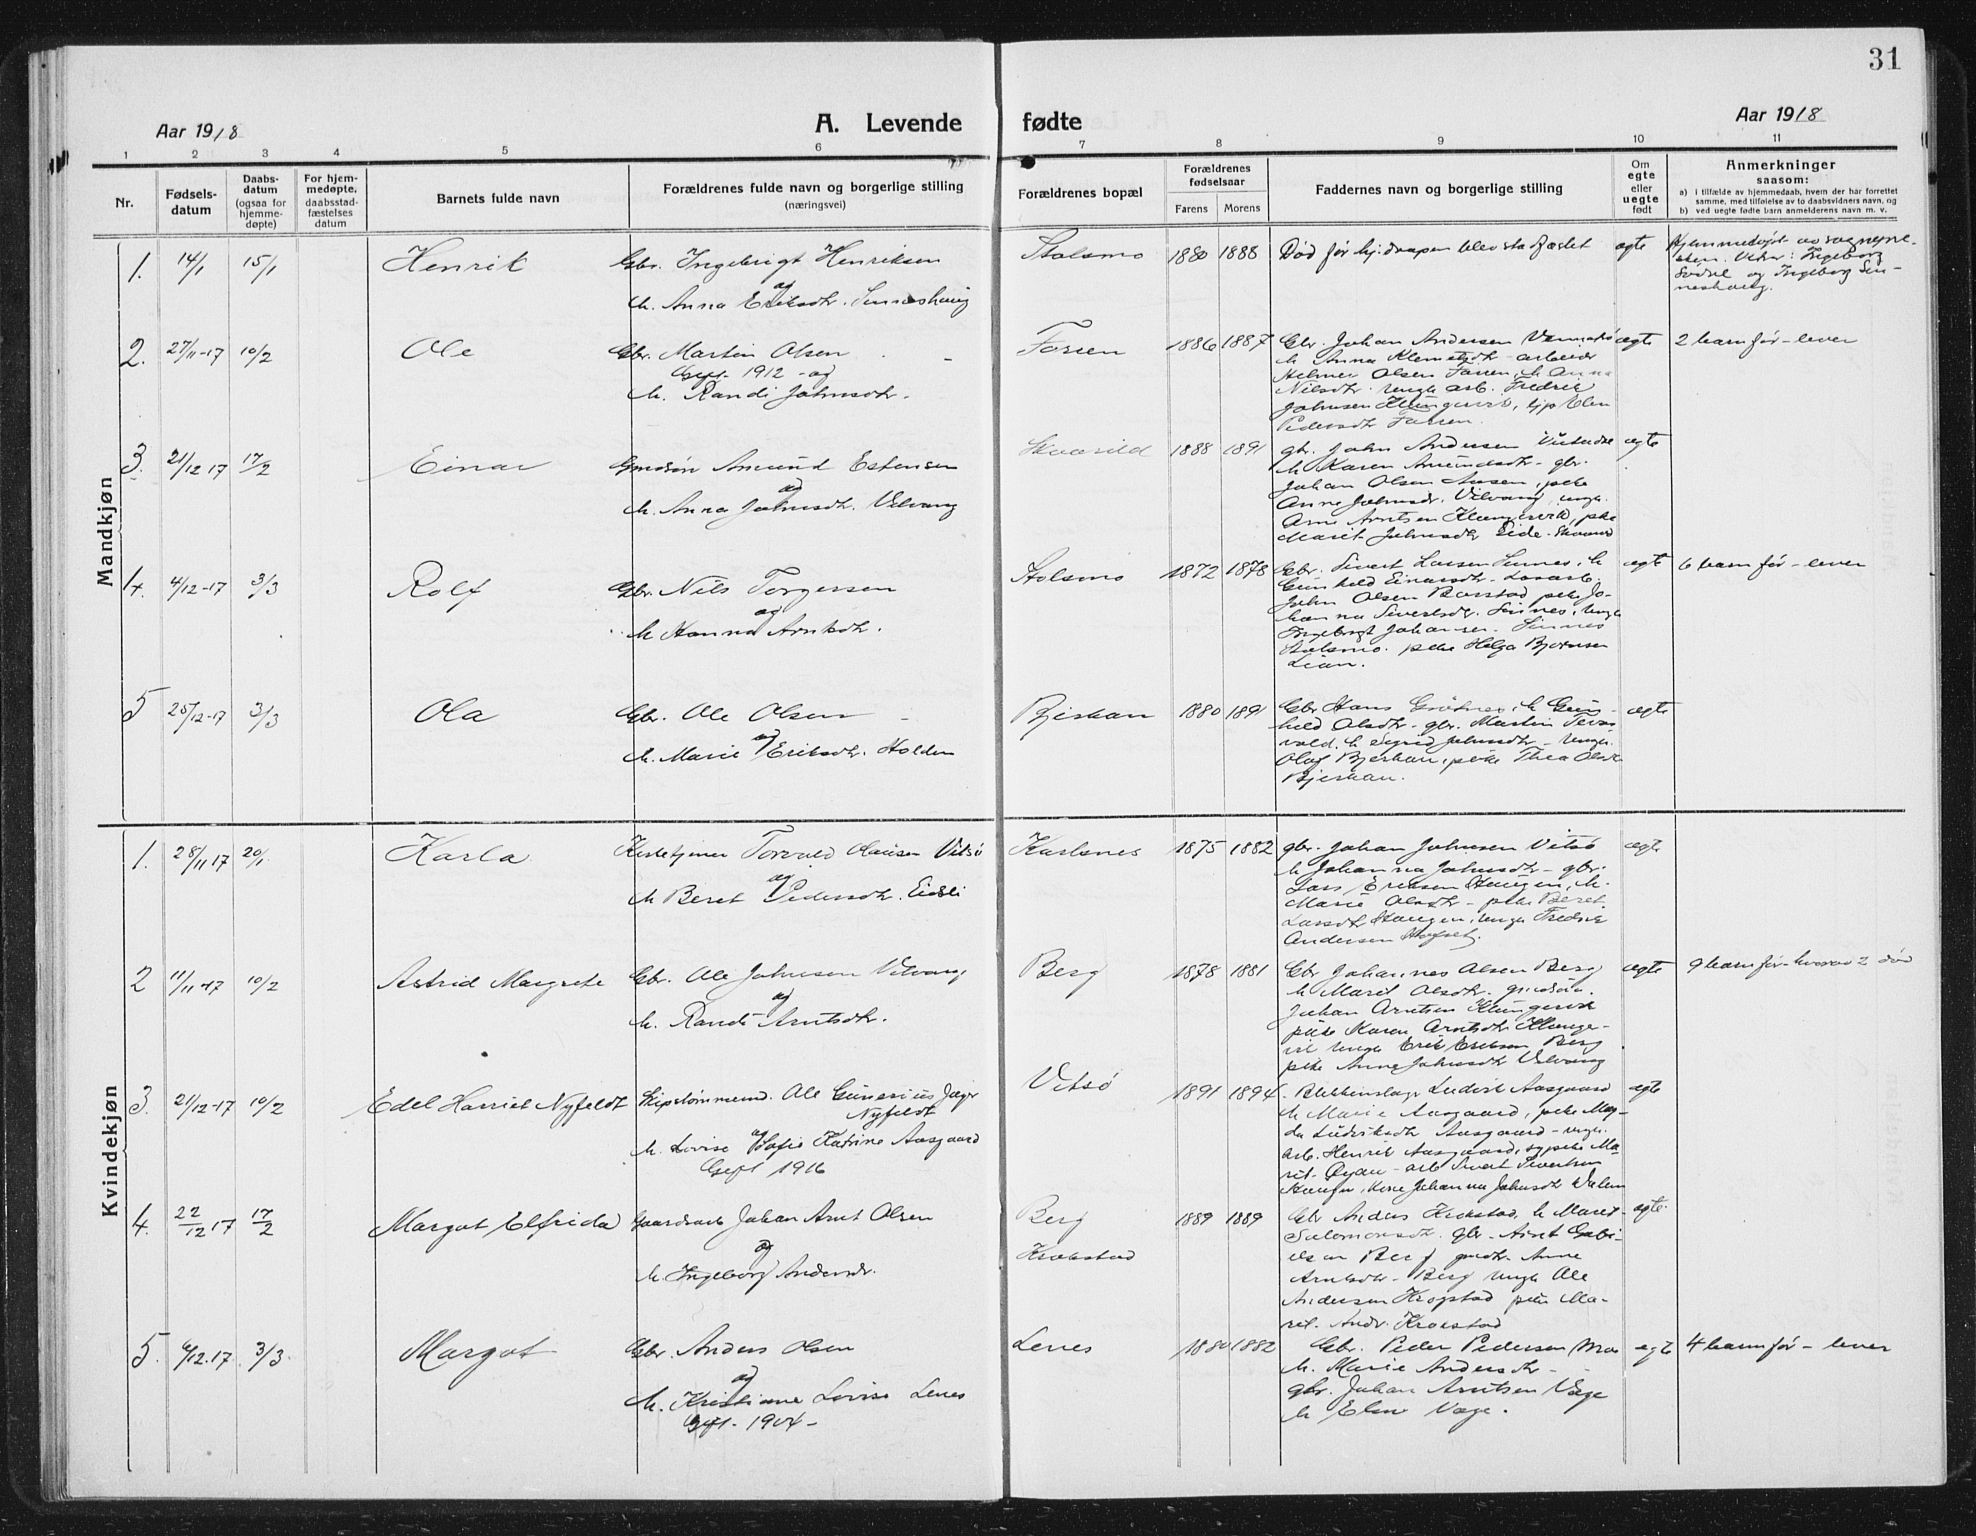 31
Aar 1918
A. Levende fødte
Aar 1918
1 2 3 4 5 6 7 8 9 10 11
Nr.
Fødsels-
datum
Daabs-
datum
(ogsaa for
hjemme-
døpte)
For hjem-
medøpte,
daabsstad-
fæstelses
datum
Barnets fulde navn
Forældrenes fulde navn og borgerlige stilling
(næringsvei)
Forældrenes bopæl
Forældrenes
fødselsaar
Farens Morens
Faddernes navn og borgerlige stilling
Om
egte
eller
uegte
født
Anmerkninger
saasom:
a) i tilfælde av hjemmedaab, hvem der har forrettet
samme, med tilføielse av to daabsvidners navn, og
b) ved uegte fødte barn anmelderens navn m. v.
Mandkjøn
1. 14/1 15/1 Henrik
Gbr. Ingebrigt Henriksen
og
h. Anna Eriksdtr. Sinneshaug
Stolsmo 1880 1888
Død før hj.daapen blev stadfæstet
egte
Hjemmedøpt av
Ingeborg
og Ingeborg Sin-
neshaug.
2. 27/11-17 10/2 Ole
Gbr. Martin Olsen
Gift 1912 - og
h. Randi Johnsdtr.
Forren 1886 1887
Gbr. Johan Andersen
h. Anna Klemetsdtr - arbeider
Helmer Olsen Forren, h. Anna
Nilsdtr. ungk. arb. Fredrik
Johnsen Klungervik, Elen
Pedersdtr Forren.
egte
2 barn før - lever
3. 21/12 17 17/2 Einar
Grdsøn Amund Estensen
og
h. Anna Johnsdtr. Vilvang
1888 1891
gbr. John Andersen
h. Karen Amundsdtr - gbr.
Johan Olsen Aasen, pike
Anna Johnsdr. Vilvang, ungk.
Arne Arntsen Klungervik, pike
Marit Johnsdtr Eide
egte
4. 4/12-17 3/3 Rolf
Gbr. Nils Torgersen
og
h. Hanna Arntsdtr.
Stolsmo 1872 1878
Gbr. Sivert Larsen Sinnes, h.
Gunhild Einarsdtr -
John Olsen pike Jo-
hanna Sivertsdtr. Sinnes, ungk.
Ingebrigt Johansen
Stolsmo. pike Helga Bjørnsen
Lian.
egte
6 barn før - lever
5 25/12-17 3/3 Ola
Gbr. Ole Olsen
og
h. Marie Eriksdtr. Holden
Bjerkan 1880 1891
Gbr Hans h. Gun-
hild Olsdtr - gbr. Martin
h Sigrid Johnsdtr - ungk.
Olaf Bjerkan, pike Thea Olsdtr
Bjerkan.
egte
Kvindekjøn
1. 28/11 17 20/1 Karla
Kirketjener Torvald Olausen Vitsø
og
h Beret Pedersdtr. Eidsli
Karlsnes 1875 1882
gbr. Johan Johnsen Vitsø
h Johanna Johnsdtr - gbr.
Lars Eriksen Haugen, h.
Marie Olsdtr - pike Beret
Larsdtr Haugen, ungk Fredrik
Andersen
egte
2 11/11-17 10/2 Astrid Margrete
Gbr. Ole Johnsen Vilvang
og
h. Randi Arntsdtr.
Berg 1878 1881
Gbr Johannes Olsen Berg
h Marit Olsdtr. grdsøn.
Johan Arntsen Klungervik
pike Karen Arntsdtr Klunger-
vik ungk Erik Eriksen Berg
pike Anna Johnsdtr Vilvang
egte
9 barn før - hvorav 2 død
3. 21/12-17 10/2 Edel Harriet Nyfeldt
Skipstømmermd. Ole Gunerius Jæger
Nyfeldt
og
h. Lovise Sofie Katrine Aasgaard
Gift 1916
Vitsø 1891 1894
Blikkenslager Ludvik Aasgaard
h. Marie Aasgaard, pike Mag-
da Ludviksdtr Aasgaard - ungk.
arb. Henrik Aasgaard, sypike Ma-
rit Øydn - arb Sivert Sivertsen
Haugen, kone Johanna Johnsdtr
egte
4. 22/12 17 17/2 Margot Elfrida
Gaardsarb Johan Arnt Olsen
og
h. Ingeborg Andersdr.
Berg
Krokstad
1889 1889
Gbr Anders Krokstad, h Marit
Salomonsdtr. gbr. Arnt Gabri-
elsen Berg grdtr. Anne
Arntsdtr - Berg ungk Ole
Andersen Krogstad pike Ma-
rit Andr. Krokstad
egte.
5. 6/12.17 3/3. Margot
Gbr. Anders Olsen
og
h. Kristianne Lovise Lenes
Gift. 1904 -
Lenes 1880 1882
Gbr. Peder Pedersen Moe
h. Marie Andersdtr -
gbr. Johan Arntsen Vage
h Elen Vage.
egte
4 barn før - lever